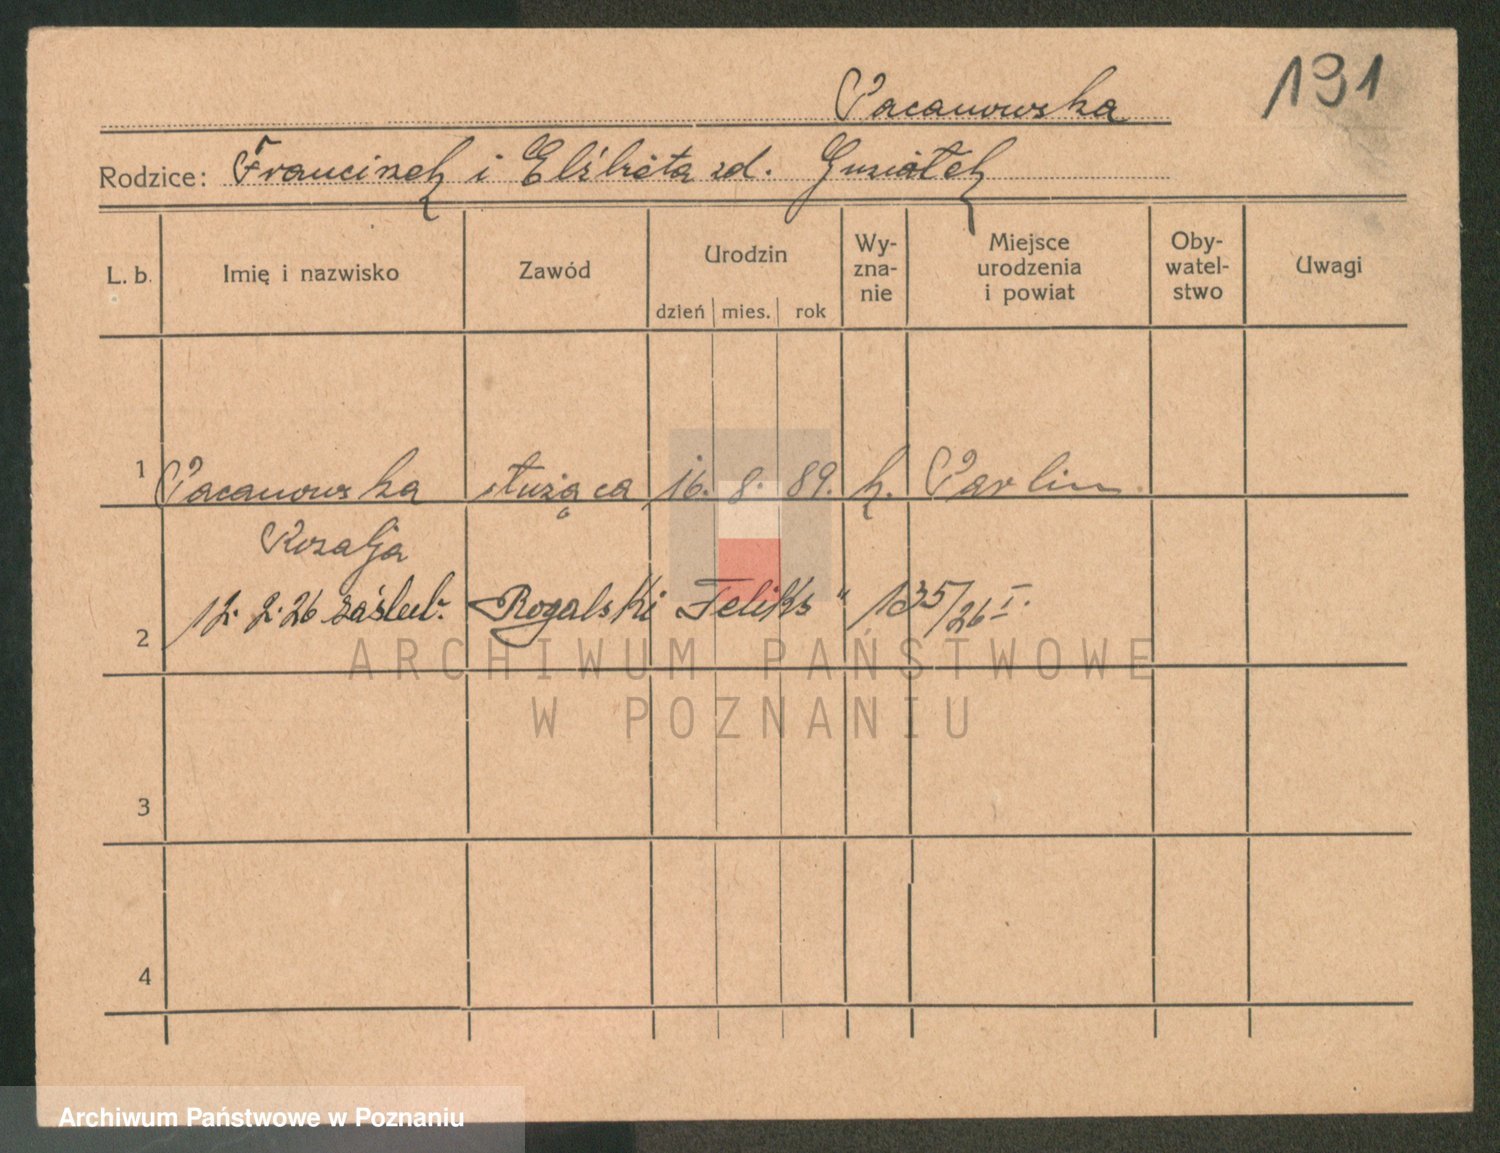 191
Pacanowska
Rodzice: Franciszek i Elżbieta zd. Guziałek
L. b. Imię i nazwisko Zawód Urodzin dzień mies. rok Wy-zna-nie Miejsce urodzenia i powiat Oby-watel-stwo Uwagi
1 Pacanowska służąca 16. 8. 89. k. Parlin
Rozalja
2 12. 2. 26 zaślub. Rogalski Feliks " 135/26 I.
ARCHIWUM PAŃSTWOWE
W POZNANIU
3
4
Archiwum Państwowe w Poznaniu